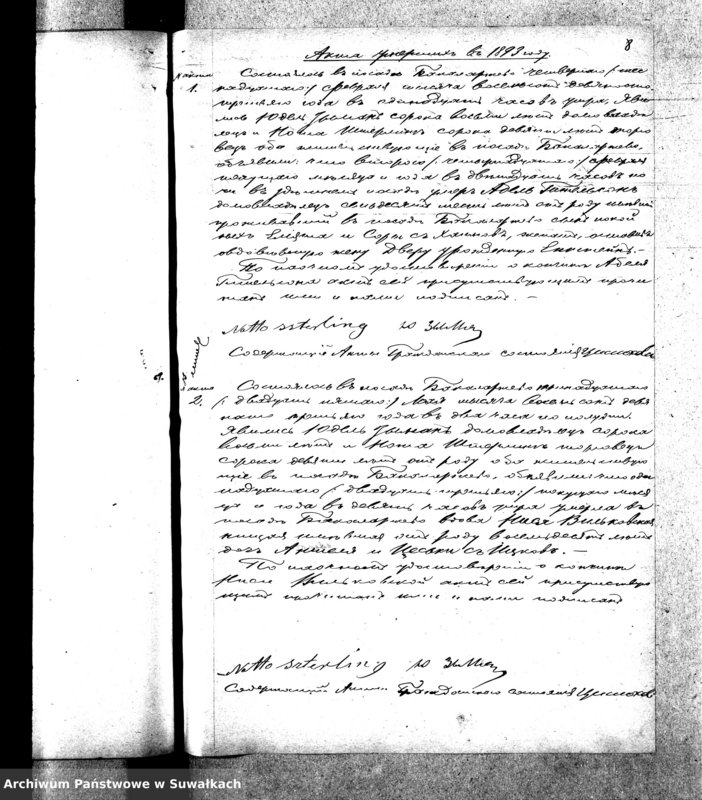 8
Акта умершихъ въ 1893 году.
№ акта
1.
Состоялось въ посадѣ Бакаларжево четвертаго /шест
надцатаго/ февраля тысяча восемьсотъ девяносто
третьяго года въ одиннадцать часовъ утра. Яви
лись Юдель Зыманъ сорока восьми лѣтъ домовладѣ
лецъ и Нотта Штерлингъ сорока девяти лѣтъ торго
вецъ оба жительствующіе въ посадѣ Бакаларжево,
объявили: что втораго /четырнадцатаго/ февраля
текущаго мѣсяца и года въ двѣнадцать часовъ но
чи въ здѣшнемъ посадѣ умеръ Абель
домовладѣлецъ семьдесятъ шесть лѣтъ отъ роду
проживавшій въ посадѣ Бакаларжево сынъ покой
ныхъ и Соры женатъ, оставивъ
овдовѣвшую жену Дверу урожденную
По настоящемъ удостовѣреніи о кончинѣ Абеля
актъ сей присутствующимъ прочи
танъ ими и нами подписанъ. —
Notto Szterling Ю Зыман
Содержащій Акты Гражданскаго состоянія
№ акта
2.
Состоялось въ посадѣ Бакаларжево тринадцатаго
/двадцать пятаго:/ Мая тысяча восемьсотъ девя
носто третьяго года въ два часа по полудни.
Явились Юдель Зыманъ домовладѣлецъ сорока
восьми лѣтъ и Нотта Штерлингъ торговецъ
сорока девяти лѣтъ отъ роду оба жительствую
щіе въ посадѣ Бакаларжево, объявили: что оди
надцатаго /:двадцать третьяго:/ текущаго мѣся
ца и года въ девять часовъ утра умерла въ
посадѣ Бакаларжево вдова Вильковская
нищая отъ роду восемьдесятъ лѣтъ
дочь и
По настоящемъ удостовѣреніи о кончинѣ
Вильковской актъ сей присутствую
щимъ прочитанъ ими и нами подписанъ
Notto Szterling Ю Зыман
Содержащій Акты Гражданскаго состоянія
Archiwum Państwowe w Suwałkach